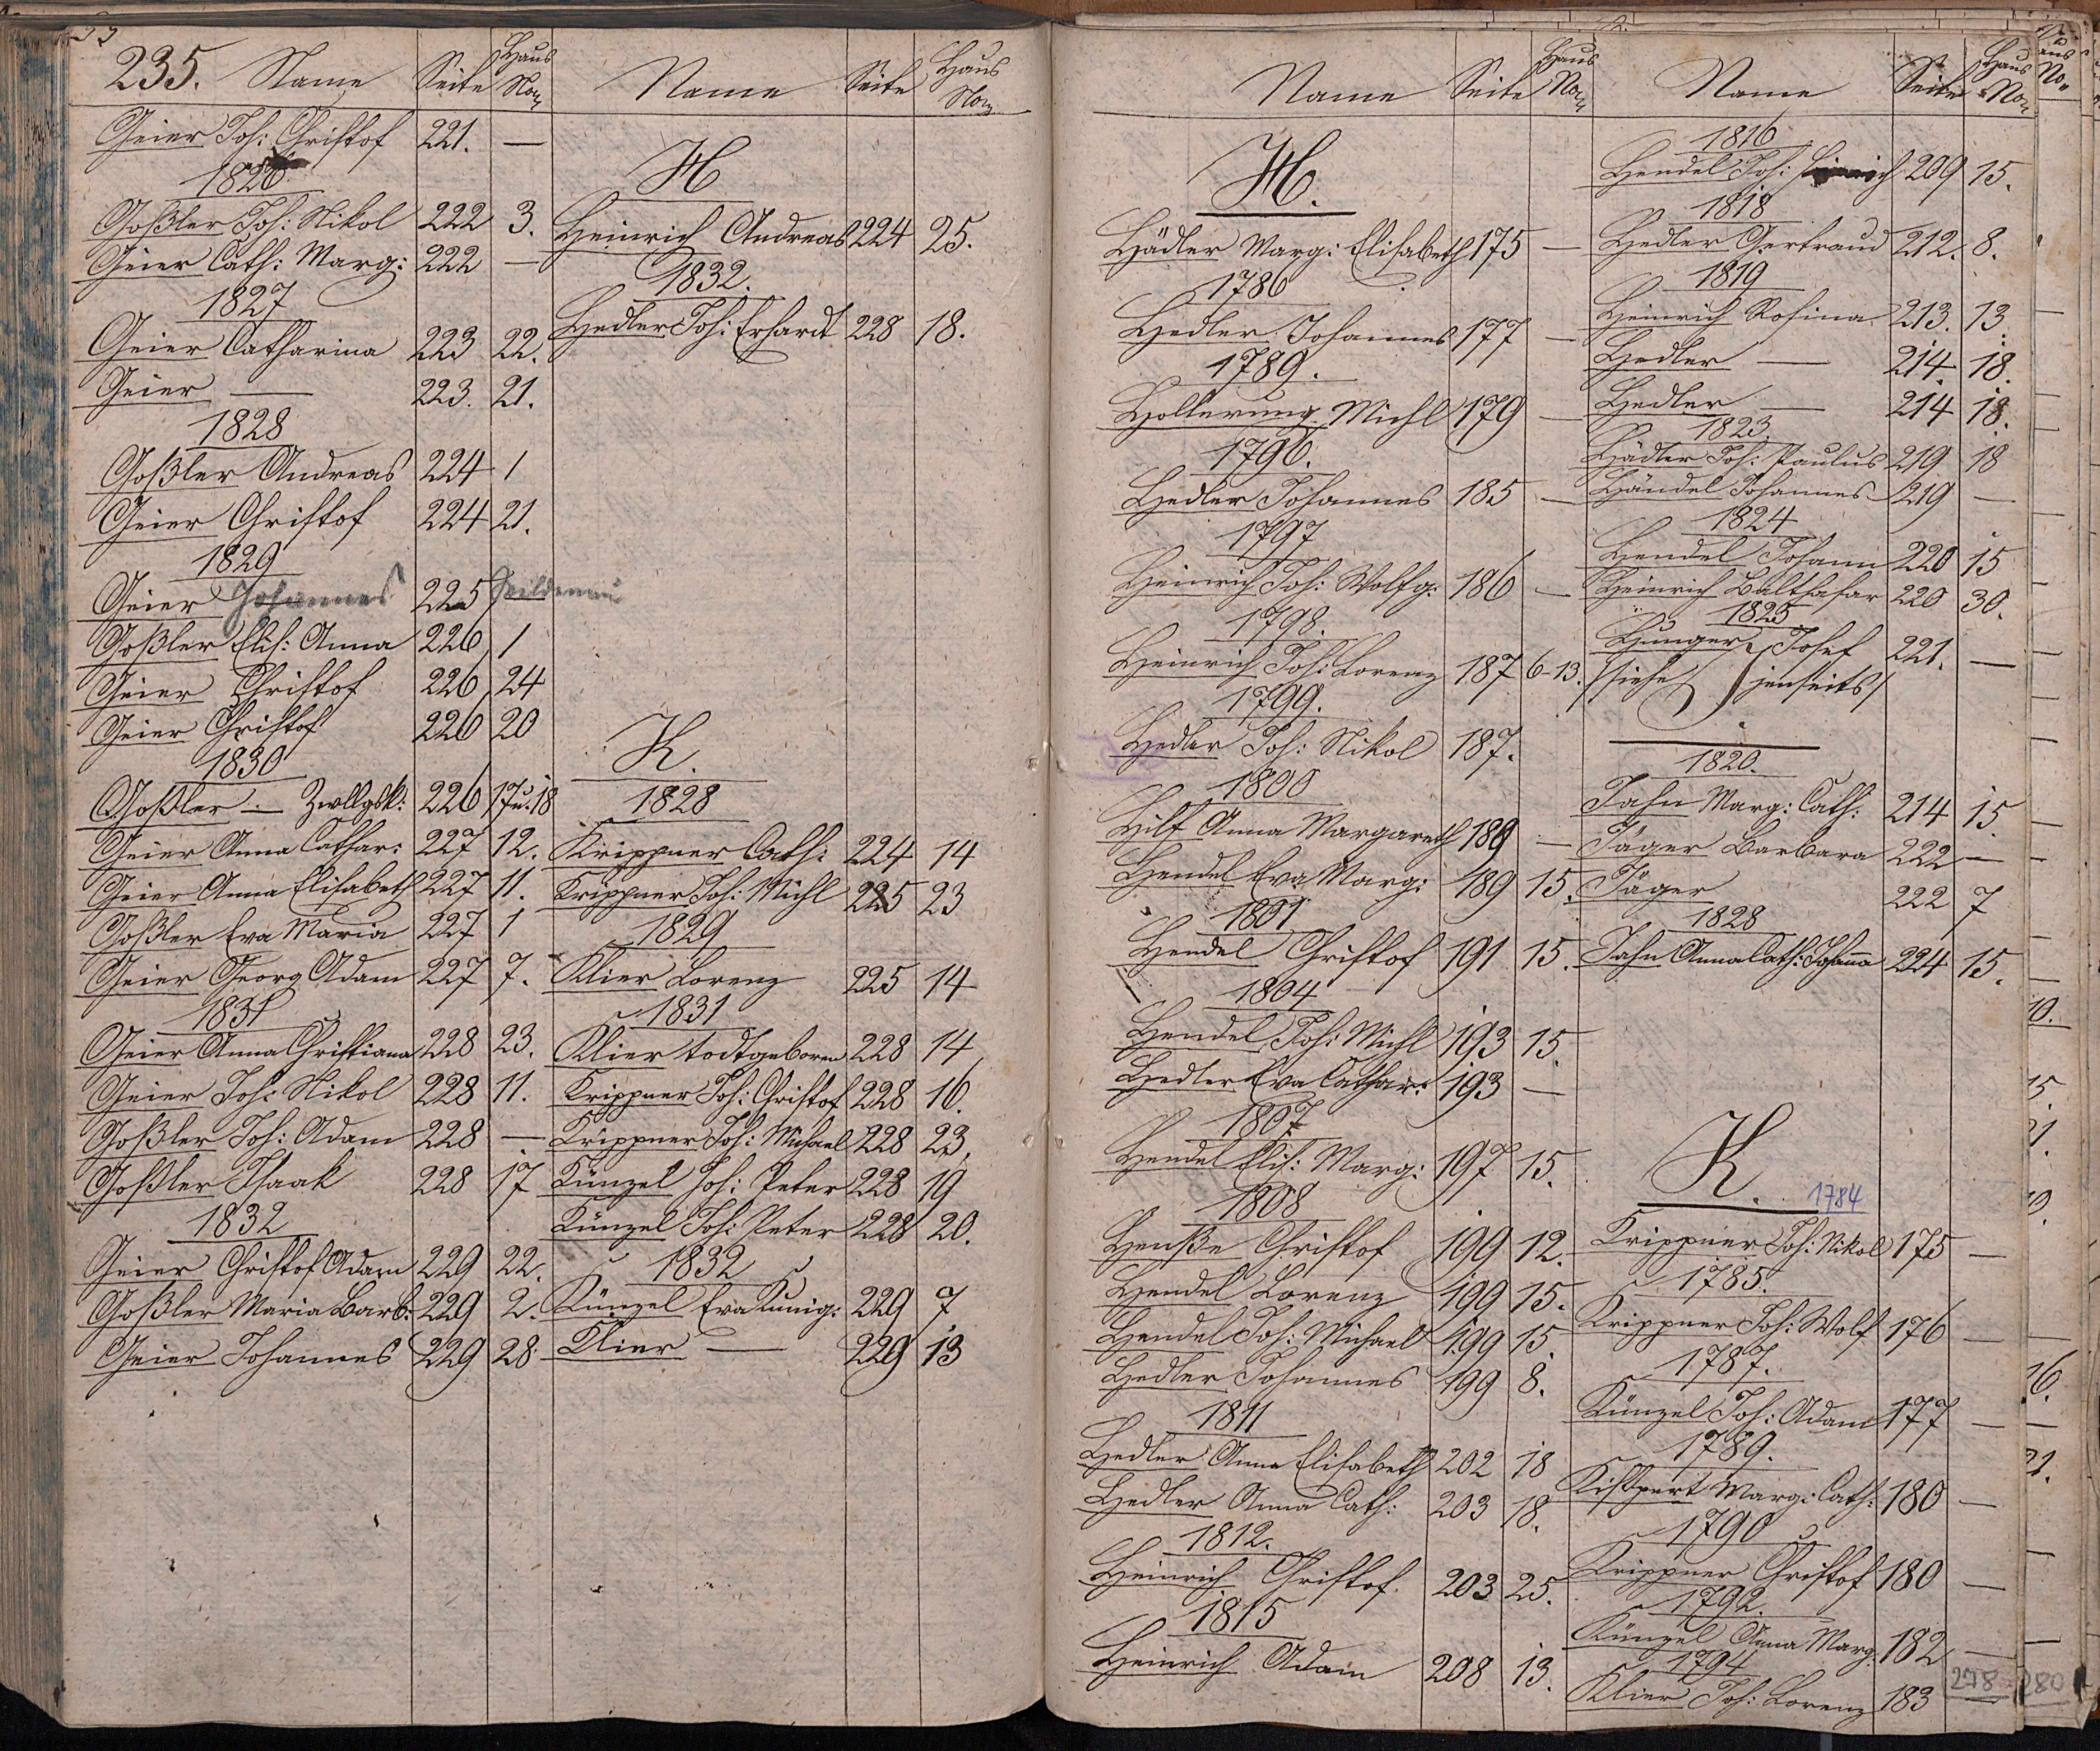 235. Name Seite Haus No.
Geier Joh: Christof 221. —
1826
Goßler Joh: Nikol 222 3.
Geier Cath: Marg: 222 —
1827
Geier Catharina 223 22.
Geier — 223. 21.
1828
Goßler Andreas 224 1
Geier Christof 224 21.
1829
Geier Johannes 225
Goßler Elis: Anna 226 1
Geier Christof 226 24
Geier Christof 226 20
1830
Goßler — Zwllgsk: 226 17u.18
Geier Anna Cathar: 227 12.
Geier Anna Elisabeth 227 11.
Goßler Eva Maria 227 1
Geier Georg Adam 227 7.
1831
Geier Anna Christiana 228 23.
Geier Joh: Nikol 228 11.
Goßler Joh: Adam 228 —
Goßler Isaak 228 17
1832
Geier Christof Adam 229 22.
Goßler Maria Barb: 229 2.
Geier Johannes 229 28.
Name Seite Haus No.
H
Heinrich Andreas 224 25.
1832.
Hedler Joh: Erhardt 228 18.
K.
1828
Krippner Cath: 224 14
Krippner Joh: Michl 225 23
1829
Klier Lorenz 225 14
1831
Klier todtgeboren 228 14
Krippner Joh: Christof 228 16.
Krippner Joh: Michael 228 23.
Künzel Joh: Peter 228 19
Künzel Joh: Peter 228 20.
1832
Künzel Eva Kunig: 229 7
Klier — 229 13
Name Seite Haus No.
H.
Hädler Marg: Elisabeth 175 —
1786
Hedler Johannes 177 —
1789.
Hollerung Michl 179 —
1796.
Hedler Johannes 185 —
1797
Heinrich Joh: Wolfg: 186 —
1798.
Heinrich Joh: Lorenz 187 6-13.
1799.
Hedler Joh: Nikol 187.
1800
Hilf Anna Margareth 189 —
Hendel Eva Marg: 189 15.
1801
Hendel Christof 191 15.
1804
Hendel Joh: Michl 193 15.
Hedler Eva Cathar: 193 —
1807
Hendel Elis: Marg: 197 15.
1808
Henße Christof 199 12.
Hendel Lorenz 199 15.
Hendel Joh: Michael 199 15.
Hedler Johannes 199 8.
1811
Hedler Anna Elisabeth 202 18
Hedler Anna Cath: 203 18.
1812.
Heinrich Christof. 203 25.
1815
Heinrich Adam 208 13.
Name Seite Haus No.
1816
Hendel Joh: 209 15.
1818
Hedler Gertraud 212. 8.
1819
Heinrich Rosina 213. 13.
Hedler — 214. 18.
Hedler — 214 18.
1823.
Hädler Joh: Paulus 219 18
Händel Johannes 219 —
1824
Hendel Johann 220 15
Heinrich Balthasar 220 30.
1825
Hunger, Josef 221. —
/siehe jenseits/
1820.
Jahn Marg: Cath: 214 15.
Jäger Barbara 222 —
Jäger 222 7
1828
Jahn Anna Cath: Johanna 224 15.
K. 1784
Krippner Joh: Nikol 175 —
1785.
Krippner Joh: Wolf 176 —
1787.
Künzel Joh: Adam 177 —
1789.
Kißpert Marg: Cath: 180 —
1790
Krippner Christof 180 —
1792.
Künzel Anna Marg: 182 —
1794
Klier Joh: Lorenz 183 —
278 280